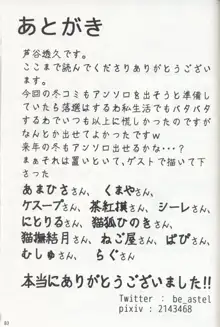 あとがき
芦谷透久です。
ここまで読んでくださりありがとうござい
ます。
今回の冬コミもアンソロを出そうと準備し
ていたら落選はするわ私生活でもバタバタ
するわでいつも以上に慌しかったのですが
なんとか出せてよかったですw
来年の冬もアンソロ出せるかな・・・?
まぁそれは置いといて、ゲストで描いて下
さった
あまひささん、くまやさん、
ケスープさん、茶紅模さん、シーレさん、
にとりるさん、猫狐ひのきさん、
猫撫結月さん、ねご屋さん、ぱぴさん、
むしゅさん、らぐさん
本当にありがとうございました!!
Twitter : be_astel
pixiv : 2143468